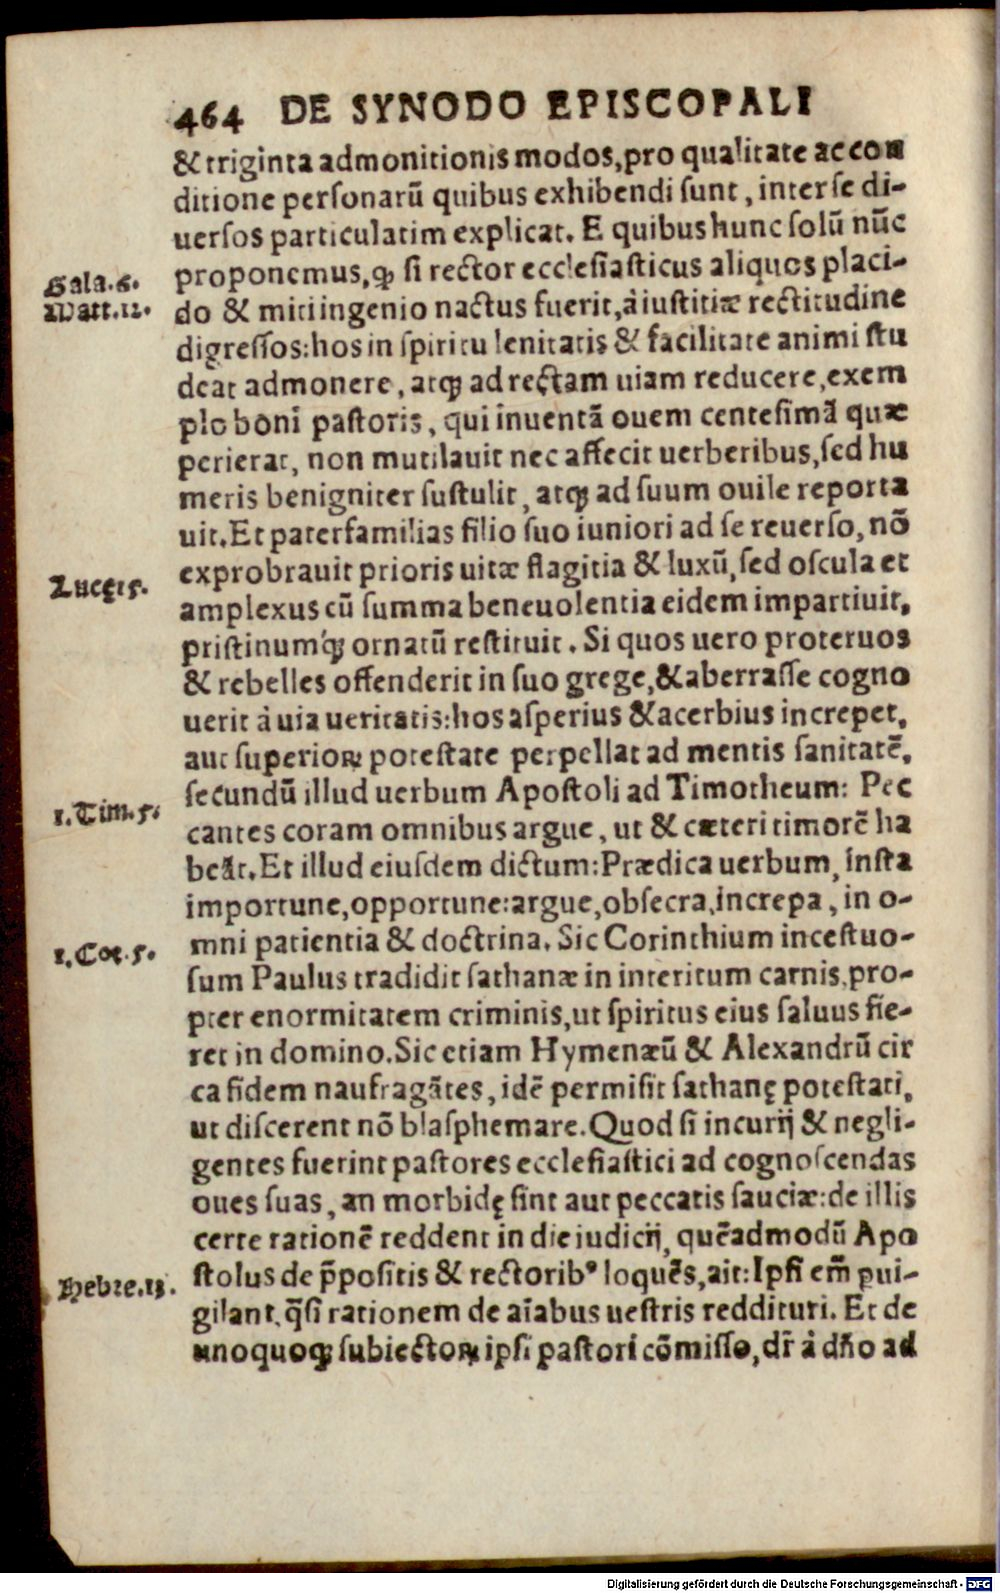 464 DE SYNODO EPISCOPALI
& triginta admonitionis modos, pro qualitate ac con
ditione personarũ quibus exhibendi sunt, inter se di-
uersos particulatim explicat. E quibus hunc solũ nũc
proponemus, ꝙ si rector ecclesiasticus aliquos placi-
Gala.6.
Matt.12.
do & miti ingenio nactus fuerit, à iustitiæ rectitudine
digressos: hos in spiritu lenitatis & facilitate animi stu
deat admonere, atqꝫ ad rectam uiam reducere, exem
plo boni pastoris, qui inuentã ouem centesimã quæ
perierat, non mutilauit nec affecit uerberibus, sed hu
meris benigniter sustulit, atqꝫ ad suum ouile reporta
uit. Et paterfamilias filio suo iuniori ad se reuerso, nõ
exprobrauit prioris uitæ flagitia & luxũ, sed oscula et
Lucę 15.
amplexus cũ summa beneuolentia eidem impartiuit,
pristinumqꝫ ornatũ restituit. Si quos uero proteruos
& rebelles offenderit in suo grege, & aberrasse cogno
uerit à uia ueritatis: hos asperius & acerbius increpet,
aut superioꝝ potestate perpellat ad mentis sanitatẽ,
secundũ illud uerbum Apostoli ad Timotheum: Pec
1.Tim.5.
cantes coram omnibus argue, ut & cæteri timorẽ ha
beãt. Et illud eiusdem dictum: Prædica uerbum, insta
importune, opportune: argue, obsecra, increpa, in o-
mni patientia & doctrina. Sic Corinthium incestuo-
1.Coꝛ.5.
sum Paulus tradidit sathanæ in interitum carnis, pro-
pter enormitatem criminis, ut spiritus eius saluus fie-
ret in domino. Sic etiam Hymenæũ & Alexandrũ cir
ca fidem naufragãtes, idẽ permisit sathanę potestati,
ut discerent nõ blasphemare. Quod si incurij & negli-
gentes fuerint pastores ecclesiastici ad cognoscendas
oues suas, an morbidę sint aut peccatis sauciæ: de illis
certe rationẽ reddent in die iudicij, quẽadmodũ Apo
stolus de p̃positis & rectoribꝰ loquẽs, ait: Ipsi em̃ ꝑui-
Hebre.13.
gilant, q̃si rationem de aĩabus uestris reddituri. Et de
unoquoqꝫ subiectoꝝ ipsi pastori cõmisso, dr̃ à dño ad
Digitalisierung gefördert durch die Deutsche Forschungsgemeinschaft - DFG